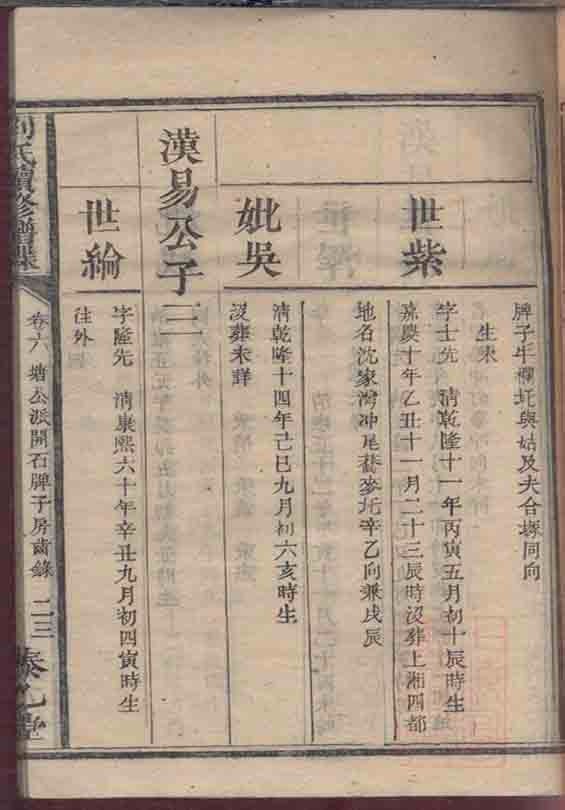 牌子牛欄圫與姑及夫合塚同向
生末
世紫
字士先　清乾隆十一年丙寅五月初十辰時生
嘉慶十年乙丑十一月二十三辰時沒葬上湘四都
地名沈家灣冲尾蕎麥圫辛乙向兼戌辰
妣吳
清乾隆十四年己巳九月初六亥時生
沒葬未詳
漢易公子三
世綸
字隆先　清康熙六十年辛丑九月初四寅時生
往外
劉氏續修譜牒
卷六　塘公派開石牌子房齒錄　二三